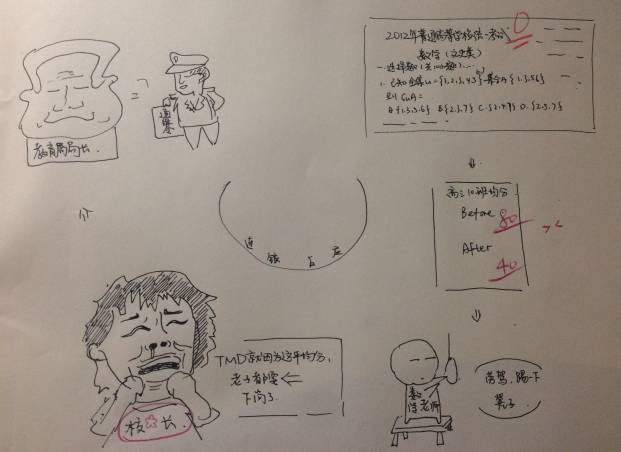 2012年普通高等学校统一考试
0
数学(文史类)
一.选择题(共10小题)
1. 已知全集U={1,2,3,4,5 集合A{1,3,5,6}
则 CuA=
A{1.3.5.6} B{2.3.7} C.{2.4.7} D.{2.5.7}
高三10班均分
Before
80
After
40
数学老师
劳驾,踢一下
凳子
连锁反应
TMD就因为这平均分,
老子都要
下岗了
校长
教育局局长
通缉